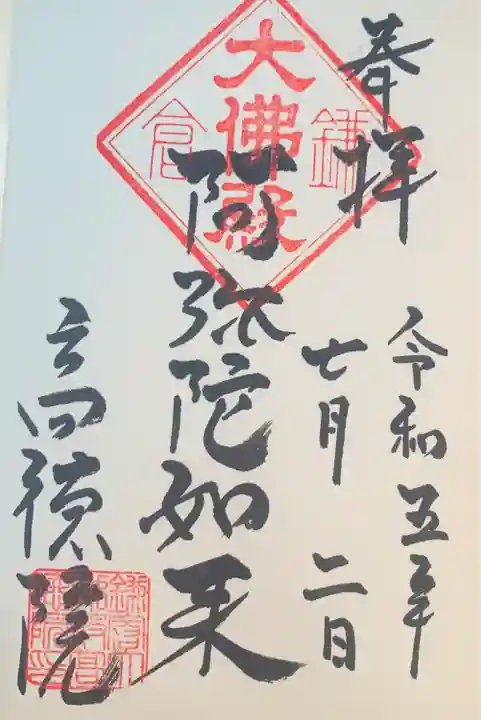 奉拝
令和五年
七月二日
鎌倉
大佛殿
阿弥陀如来
高徳院